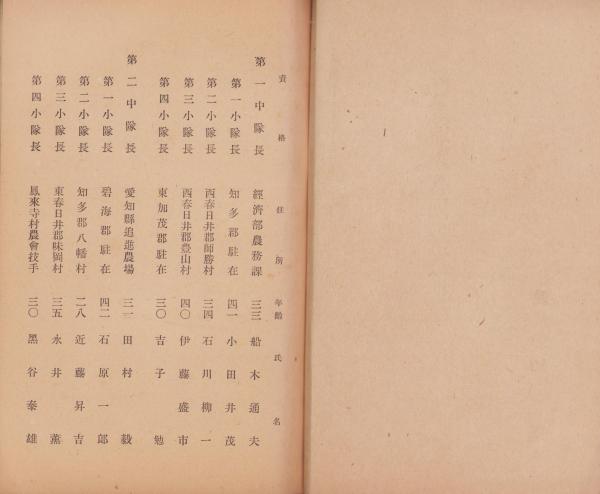 資格 住所 年齡 氏名
第一中隊長 經濟部農務課 三三 船木通夫
第一小隊長 知多郡駐在 四一 小田井茂
第二小隊長 西春日井郡師勝村 三四 石川柳一
第三小隊長 西春日井郡豊山村 四〇 伊藤盛市
第四小隊長 東加茂郡駐在 三〇 吉子勉
第二中隊長 愛知縣追進農場 三一 田村毅
第一小隊長 碧海郡駐在 四二 石原一郎
第二小隊長 知多郡八幡村 二八 近藤昇吉
第三小隊長 東春日井郡味岡村 三五 永井薫
第四小隊長 鳳來寺村農會技手 三〇 黑谷泰雄